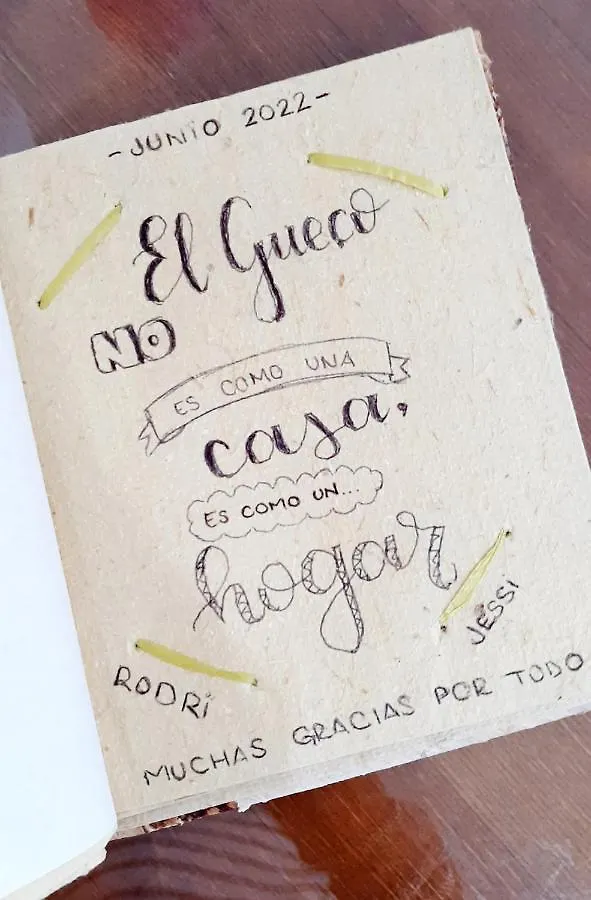 -JUNIO 2022-
El Gueco
NO
ES COMO UNA
casa,
ES COMO UN...
hogar
JESSI
RODRi
MUCHAS GRACIAS POR TODO